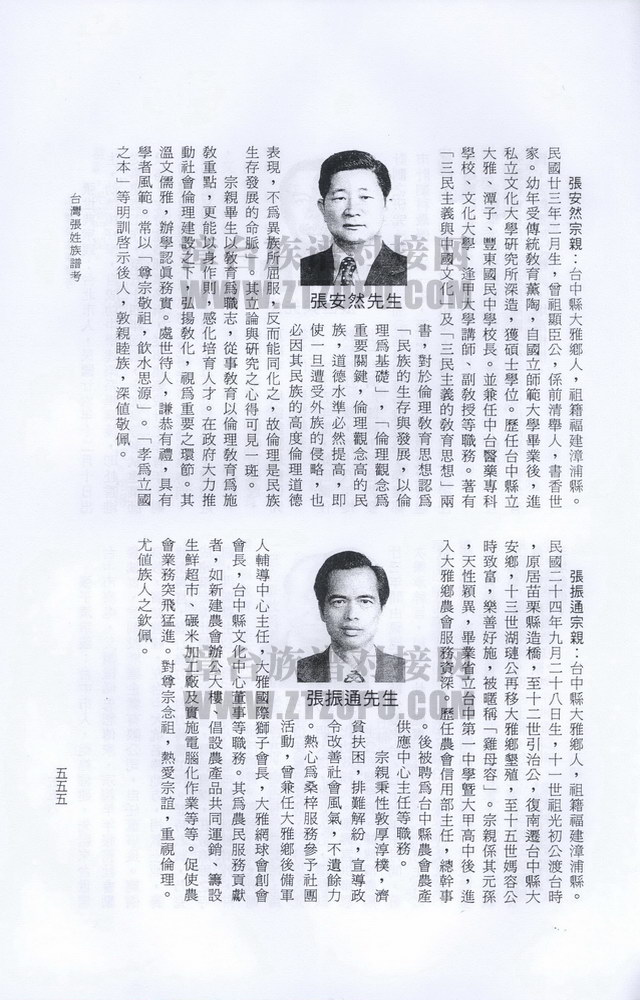 張安然宗親：台中縣大雅鄉人，祖籍福建漳浦縣。
民國廿三年二月生，曾祖顯臣公，係前清舉人，書香世
家。幼年受傳統教育薰陶，自國立師範大學畢業後，進
私立文化大學研究所深造，獲碩士學位。歷任台中縣立
大雅、潭子、豐東國民中學校長。並兼任中台醫藥專科
學校、文化大學、逢甲大學講師、副教授等職務。著有
「三民主義與中國文化」及「三民主義的教育思想」兩
書，對於倫理教育思想認爲
「民族的生存與發展，以倫
理爲基礎」，「倫理觀念爲
重要關鍵，倫理觀念高的民
族，道德水準必然提高，即
使一旦遭受外族的侵略，也
必因其民族的高度倫理道德
張安然先生
表現，不爲異族所屈服，反而能同化之，故倫理是民族
生存發展的命脈」。其立論與研究之心得可見一斑。
宗親畢生以教育爲職志，從事教育以倫理教育爲施
教重點，更能以身作則，感化培育人才。在政府大力推
動社會倫理建設之下，弘揚教化，視爲重要之環節。其
溫文儒雅，辦學認眞務實。處世待人，謙恭有禮，具有
學者風範。常以「尊宗敬祖，飲水思源」。「孝爲立國
之本」等明訓啓示後人，敦親睦族，深値敬佩。
張振通宗親：台中縣大雅鄉人，祖籍福建漳浦縣。
民國二十四年九月二十八日生，十一世祖光初公渡台時
，原居苗栗縣造橋，至十二世引治公，復南遷台中縣大
安鄉，十三世湖璉公再移大雅鄉墾殖，至十五世媽容公
時致富，樂善好施，被暱稱「雞母容」。宗親係其元孫
，天性穎異，畢業省立台中第一中學暨大甲高中後，進
入大雅鄉農會服務資深。歷任農會信用部主任，總幹事
。後被聘爲台中縣農會農產
供應中心主任等職務。
宗親秉性敦厚淳樸，濟
貧扶困，排難解紛，宣導政
令改善社會風氣，不遺餘力
。熱心爲桑梓服務參予社團
活動，曾兼任大雅鄉後備軍
張振通先生
人輔導中心主任，大雅國際獅子會長，大雅網球會創會
會長，台中縣文化中心董事等職務。其爲農民服務貢獻
者，如新建農會辦公大樓、倡設農產品共同運銷、籌設
生鮮超市、碾米加工廠及實施電腦化作業等等。促使農
會業務突飛猛進。對尊宗念祖，熱愛宗誼，重視倫理。
尤値族人之欽佩。
台灣張姓族譜考
五五五